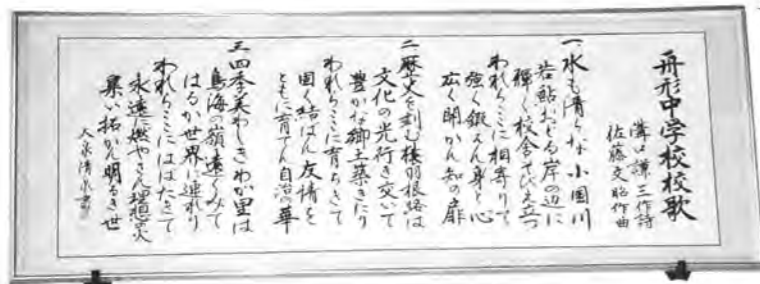 舟形中学校校歌
溝口謙三作詩
佐藤文昭作曲
一 水も清らな小国川
若鮎おどる岸の辺に
輝く校舎そびえ立つ
われらここに相寄りて
強く鍛えん身と心
広く開かん知の扉
二 歴史を刻む楼羽根路は
文化の光行き交いて
豊かな郷土築きたり
われらここに育ちきて
固く結ばん友情を
ともに育てん自治の華
三 四季美わしきわが里は
鳥海の嶺遠くみて
はるか世界に連れり
われらここにはばたきて
永遠に燃やさん理想の火
集い拓かん明るき世